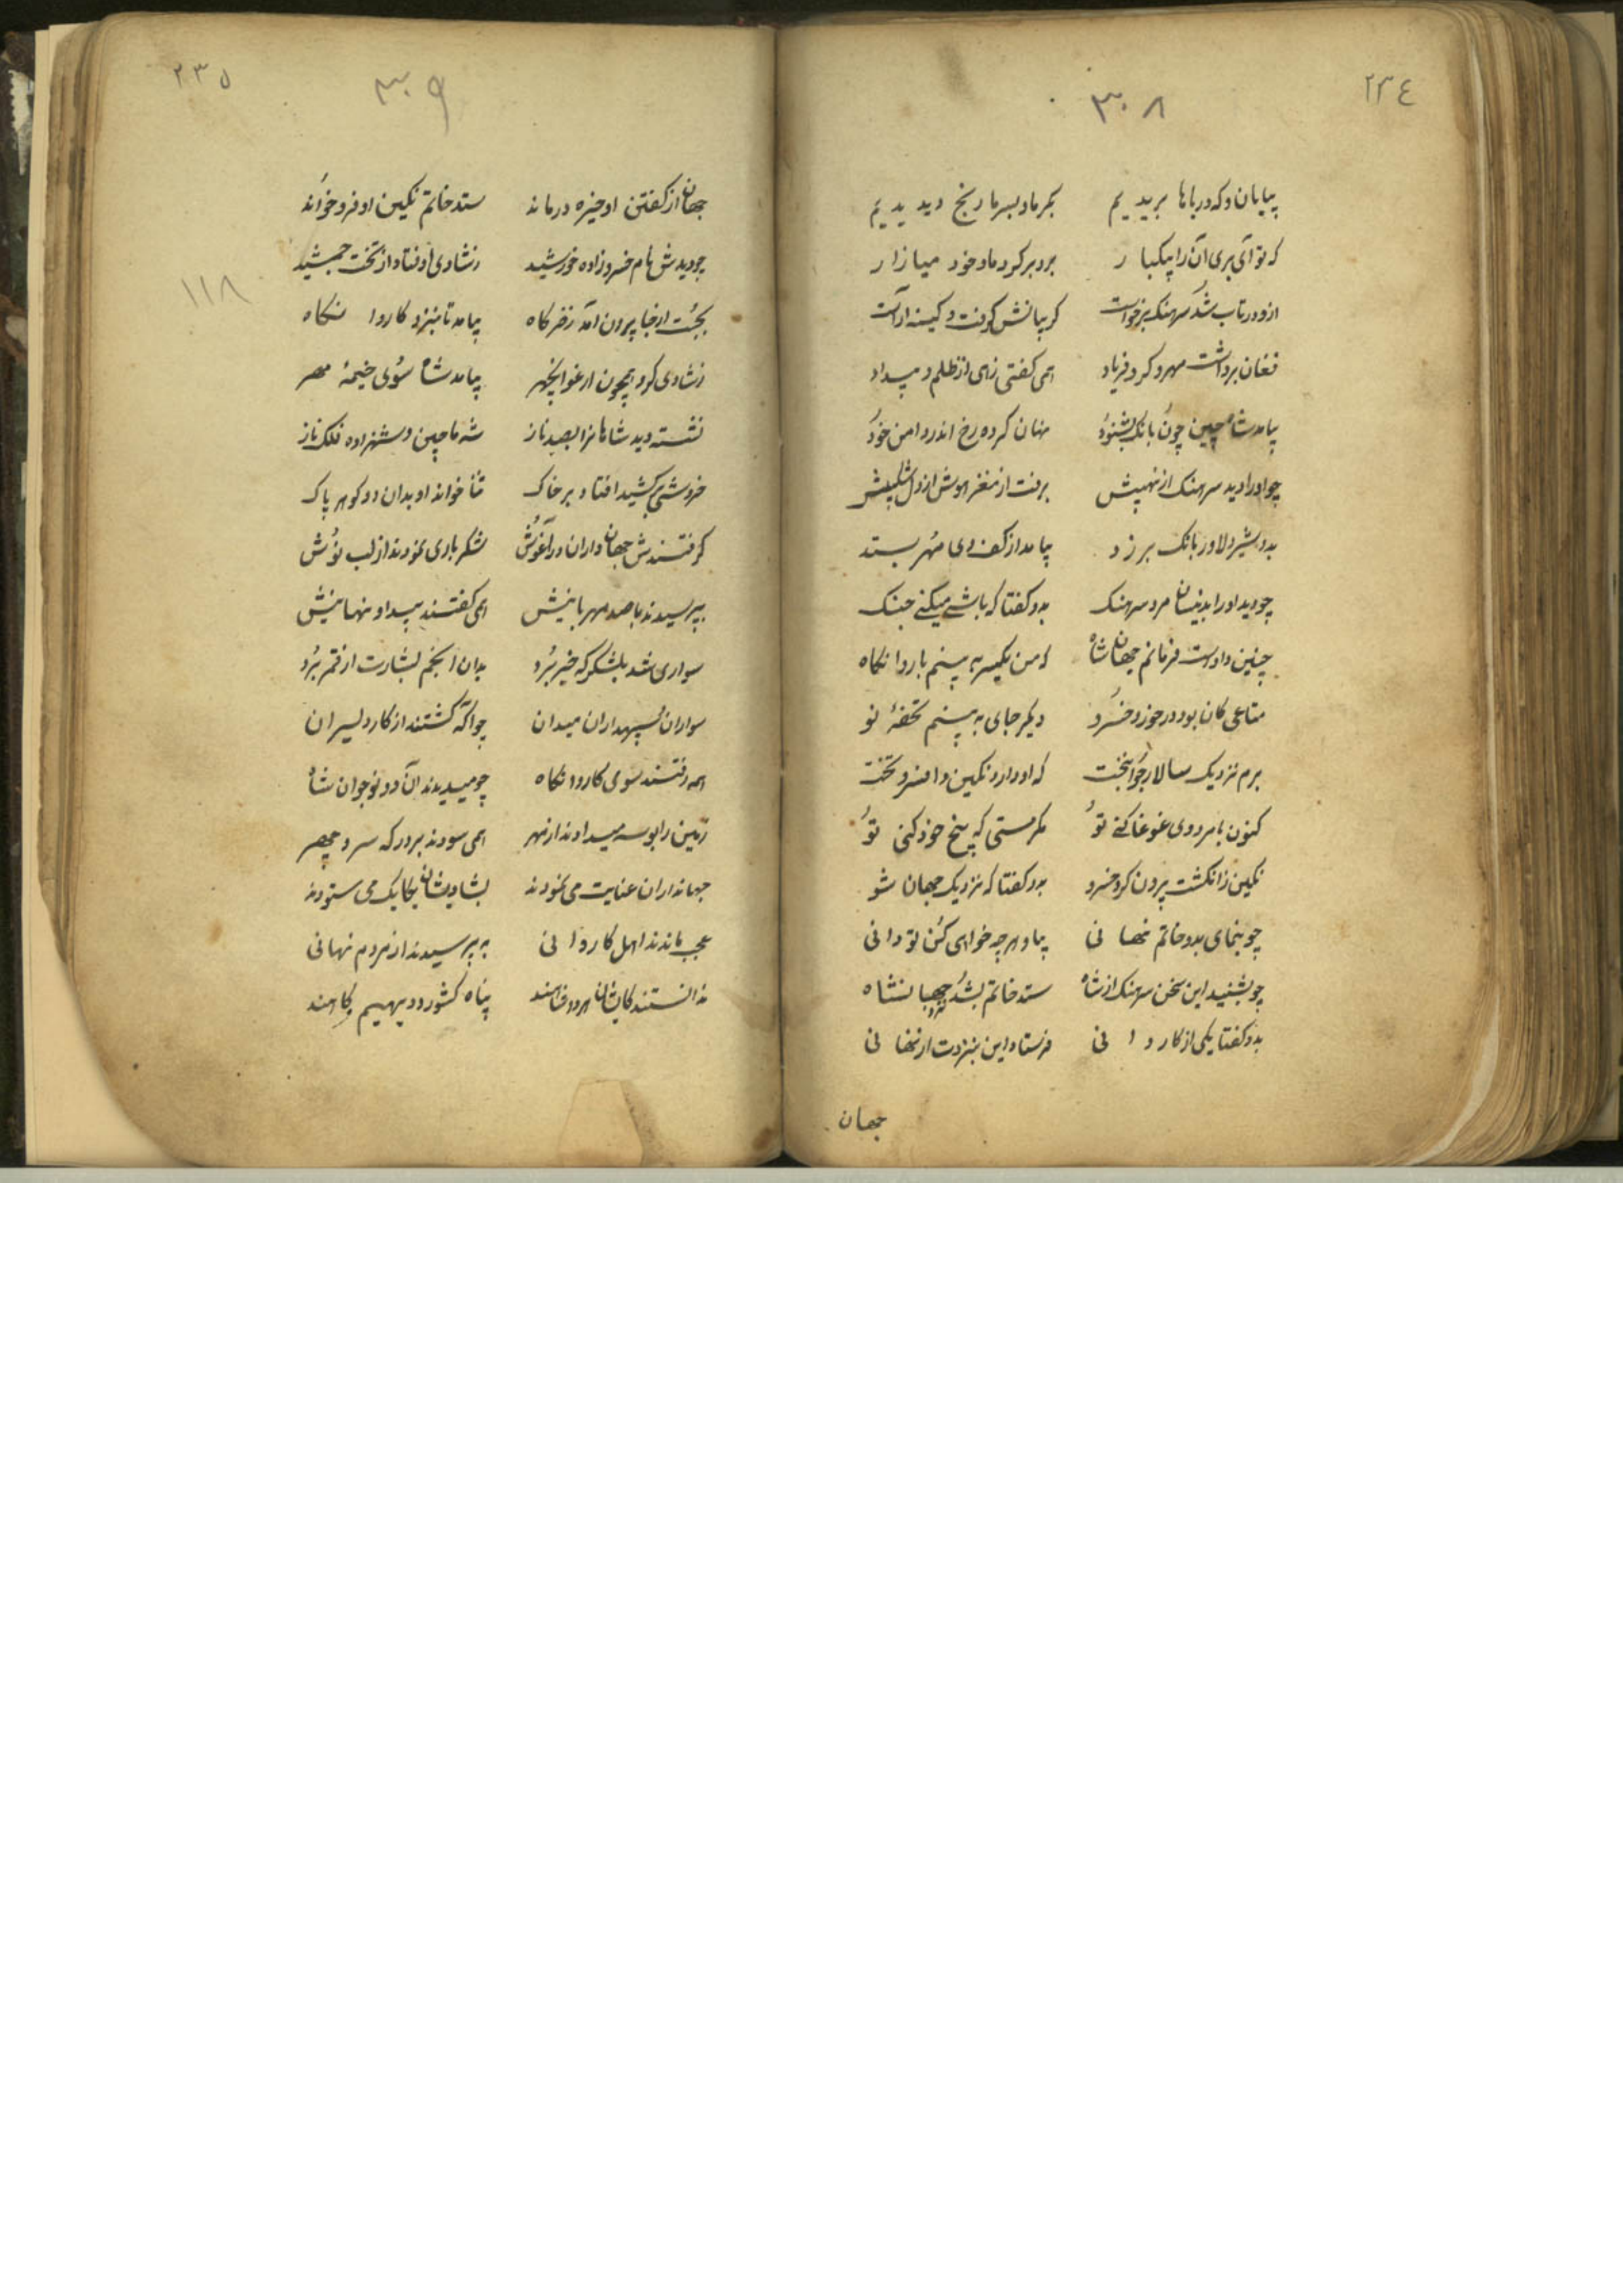 ۲۳٤
۳۰۸
بیابان و که و دریاها بریدیم بگرما و بسرما رنج دیدیم
که تو آی بری آن را بیکبار برو برکرد ماد خود میازار
ازو در تاب شد سرهنک برخواست کریبانش کرفت و کینه آراست
فغان برداشت مهر و کرد فریاد همی کفتی زهی از ظلم و بیداد
بیامد شاه چین چون بانک بشنود نهان کرده رخ اندر دامن خود
چو او را دید سرهنک از نهیبش برفت از مغز هوش از دل شکیبش
بدو شیر دلاور بانک برزد بیامد از کف وی مهر بستد
چو دید او را بدینسان مرد سرهنک بدو کفتا که باشی میکنی جنک
چنین دادست فرمانم جهان شاه که من یکسر به بینم باروانکاه
متاعی کان بود در خورد خسرو دیکر جای به بینم تحفهٔ نو
برم نزدیک سالار جوانبخت که او دارد نکین و افسر و تخت
کنون با مردوی غوغا کنی تو مکر مستی که بیخ خود کنی تو
نکین ز انکشت بیرون کرد خسرو بدو کفتا که نزدیک جهان شو
چو بنمای بدو خاتم نهانی بیا و هرچه خواهی کن تو دانی
چو بشنید این سخن سرهنک از شاه ستد خاتم بشد نزد جهبانشاه
بدو کفتا یکی از کاروانی فرستاد این بنزدت ارنهانی
جهان
۲۳۵
۳۰۹
جهان از کفتن او خیره درماند ستد خاتم نکین او فرو خواند
چو دیدش نام خسرو زاده خورشید زشادی اوفتاد از تخت جمشید
۱۱۸
بجست از جا برون آمد زخرکاه بیامد تا بنزد کاروانکاه
زشادی کرد همچون ارغوان چهر بیامد شاه سوی خیمهٔ مهر
نشسته دید شاهانرا بصد ناز شه ماچین و شهزاده فلک ناز
خروشی برکشید افتاد بر خاک ثنا خواند او بدان دو کوهر پاک
کرفتندش جهان داران در آغوش شکرباری نمودند از لب نوش
بپرسیدند با صد مهربانیش همی کفتند پیدا و نهانیش
سواری شد بلشکر که خبر برد بدان انجم بشارت از قمر برد
سواران سپهداران میدان چو آکه کشتند از کار دلیران
همه رفتند سوی کاروانکاه چو میدیدند آن دو نوجوان شاه
زمین را بوسه میدادند از مهر همی سودند بر درکه سر و چهر
جهانداران عنایت می نمودند بشادیشان یکایک می ستودند
عجب ماندند اهل کاروانی به پرسیدند از مردم نهانی
ندانستند کایشان هر دو شاهند پناه کشور و دیهیم کاهند